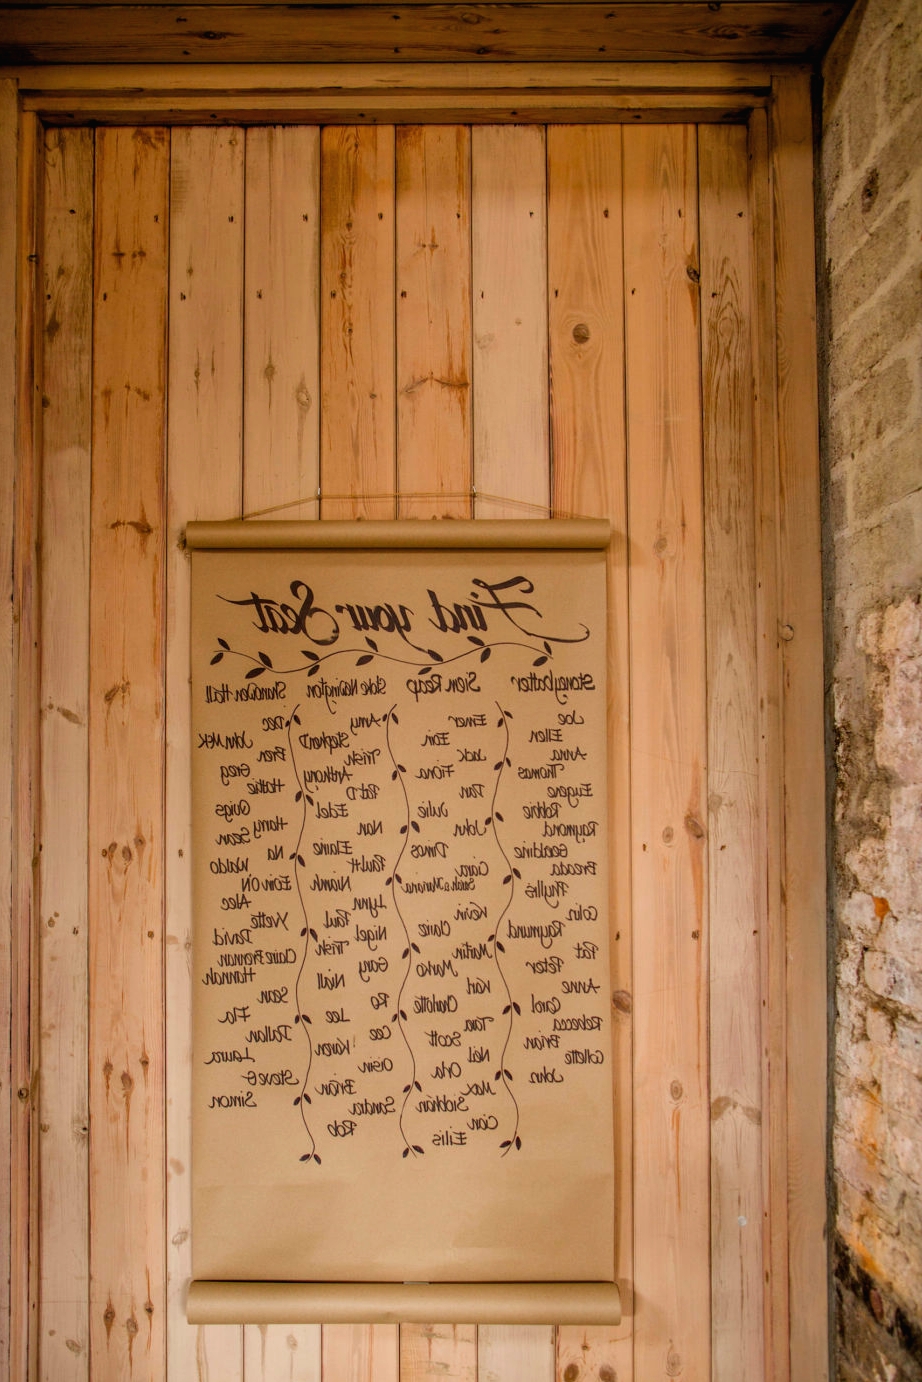 Find your Seat
Stoneybatter
Joe
Ellen
Anna
Thomas
Eugene
Robbie
Raymond
Geraldine
Breda
Phyllis
Colin
Raymund
Pat
Peter
Anne
Carol
Rebecca
Brian
Collette
John
Sion Reap
Emer
Eoin
Jack
Fiona
Dan
Julie
John
Dinos
Ciara
Sarah & Mariana
Kevin
Claire
Martin
Marko
Karl
Charlotte
Tara
Scott
Neil
Orla
Max
Siobhán
Cian
Eilis
Amy
Stephen D
Trish
Anthony
Pat D
Edel
Nan
Elaine
Paul H
Niamh
Lynn
Paul
Nigel
Trish
Gary
Niall
Ro
Lee
Cee
Karen
Oisin
Brian
Sandra
Rob
Shandon Hall
Dec
John McK
Bren
Greg
Hattie
Gugs
Harry
Sean
Na
Waldo
Eoin ON
Alec
Yvette
David
Claire Brennan
Hannah
Sean
Fia
Dallan
Laura
Steve G
Simon